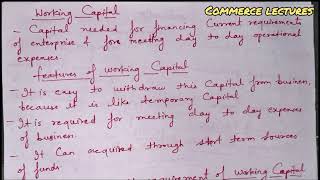 Commerce lectures
Working Capital
- Capital needed for financing Current requirements
of enterprise & for meeting day to day operational
expenses.
features of working Capital
- It is easy to withdraw this Capital from business,
because it is like temporary Capital
- It is required for meeting day to day expenses
of business.
- It Can acquired through short term sources
of funds.
requirement of working Capital